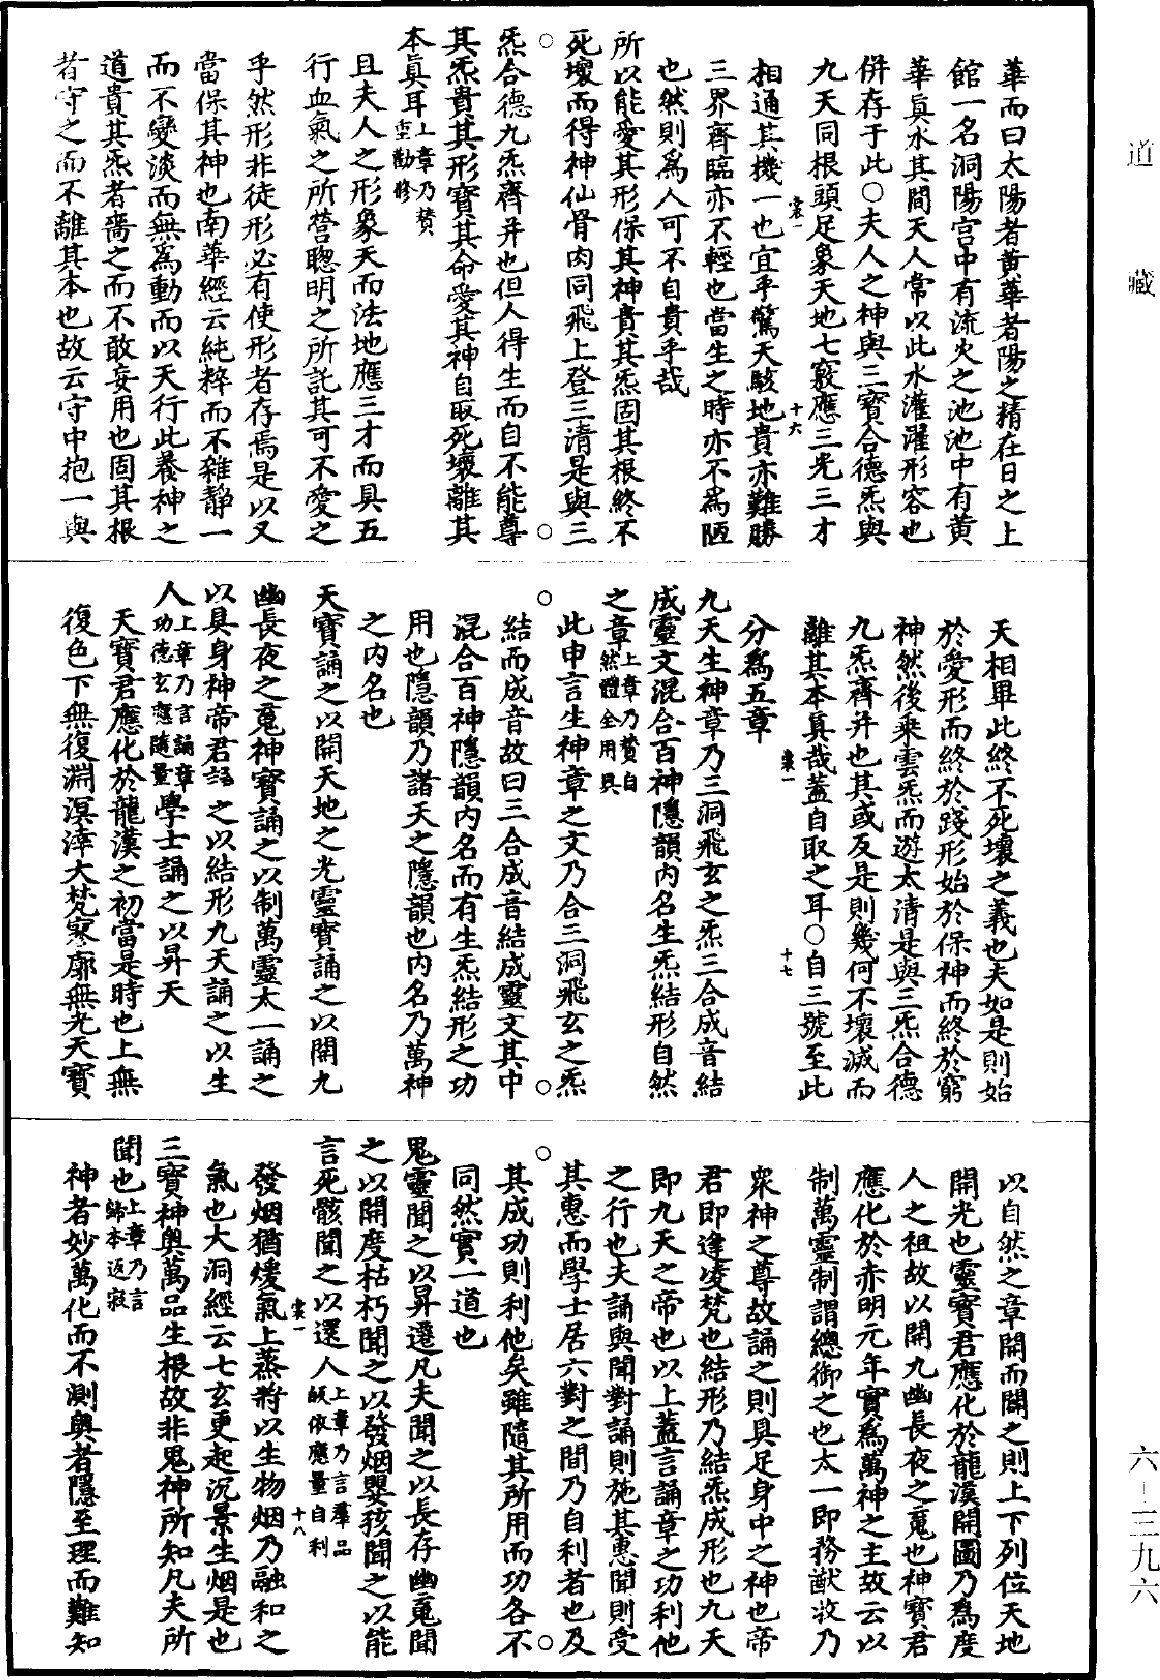 道藏
華而曰太陽者黃華者陽之精在日之上
館一名洞陽宮中有流火之池池中有黃
華真水其間天人常以此水灌濯形容也
併存于此○夫人之神與三寶合德炁與
九天同根頭足象天地七竅應三光三才
裳一
十六
相通其機一也宜乎驚天駭地貴亦難勝
三界齊臨亦不輕也當生之時亦不為陋
也然則為人可不自貴乎哉
所以能愛其形保其神貴其炁固其根終不
死壞而得神仙骨肉同飛上登三清是與三
炁合德九炁齊并也但人得生而自不能尊
其炁貴其形寶其命愛其神自取死壞離其
本真耳上章乃贊重勸修
且夫人之形象天而法地應三才而具五
行血氣之所營聰明之所託其可不愛之
乎然形非徒形必有使形者存焉是以又
當保其神也南華經云純粹而不雜靜一
而不變淡而無為動而以天行此養神之
道貴其炁者嗇之而不敢妄用也固其根
者守之而不離其本也故云守中抱一與
天相畢此終不死壞之義也夫如是則始
於愛形而終於踐形始於保神而終於窮
神然後乘雲炁而遊太清是與三炁合德
九炁齊并也其或反是則幾何不壞滅而
離其本真哉蓋自取之耳○自三號至此
裳一
十七
分為五章
九天生神章乃三洞飛玄之炁三合成音結
成靈文混合百神隱韻內名生炁結形自然
之章上章乃贊自然體全用具
此申言生神章之文乃合三洞飛玄之炁
結而成音故曰三合成音結成靈文其中
混合百神隱韻內名而有生炁結形之功
用也隱韻乃諸天之隱韻也內名乃萬神
之內名也
天寶誦之以開天地之光靈寶誦之以開九
幽長夜之䰟神寶誦之以制萬靈太一誦之
以具身神帝君誦之以結形九天誦之以生
人上章乃言誦章功德玄應隨量學士誦之以昇天
天寶君應化於龍漢之初當是時也上無
復色下無復淵溟涬大梵寥廓無光天寶
以自然之章開而闢之則上下列位天地
開光也靈寶君應化於龍漢開圖乃為度
人之祖故以開九幽長夜之䰟也神寶君
應化於赤明元年實為萬神之主故云以
制萬靈制謂總御之也太一即務猷收乃
眾神之尊故誦之則具足身中之神也帝
君即逢凌梵也結形乃結炁成形也九天
即九天之帝也以上蓋言誦章之功利他
之行也夫誦與聞對誦則施其惠聞則受
其惠而學士居六對之間乃自利者也及
其成功則利他矣雖隨其所用而功各不
同然實一道也
鬼靈聞之以昇遷凡夫聞之以長存幽䰟聞
之以開度枯朽聞之以發烟嬰孩聞之以能
言死骸聞之以還人上章乃言羣品皈依應量自利
裳一
十八
發烟猶煖氣上蒸將以生物烟乃融和之
氣也大洞經云七玄更起沉景生烟是也
三寶神奧萬品生根故非鬼神所知凡夫所
聞也上章乃言歸本返寂
神者妙萬化而不測奧者隱至理而難知
六-三九六